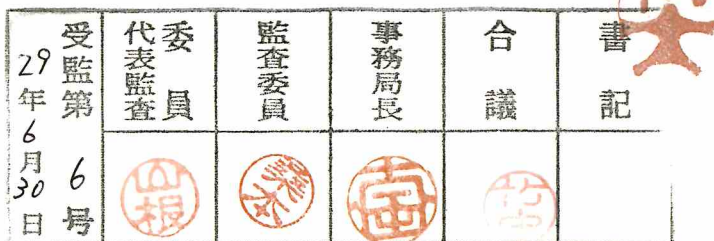 受監第6号
29年6月30日
代表監査委員
監査委員
事務局長
合議
書記
山根